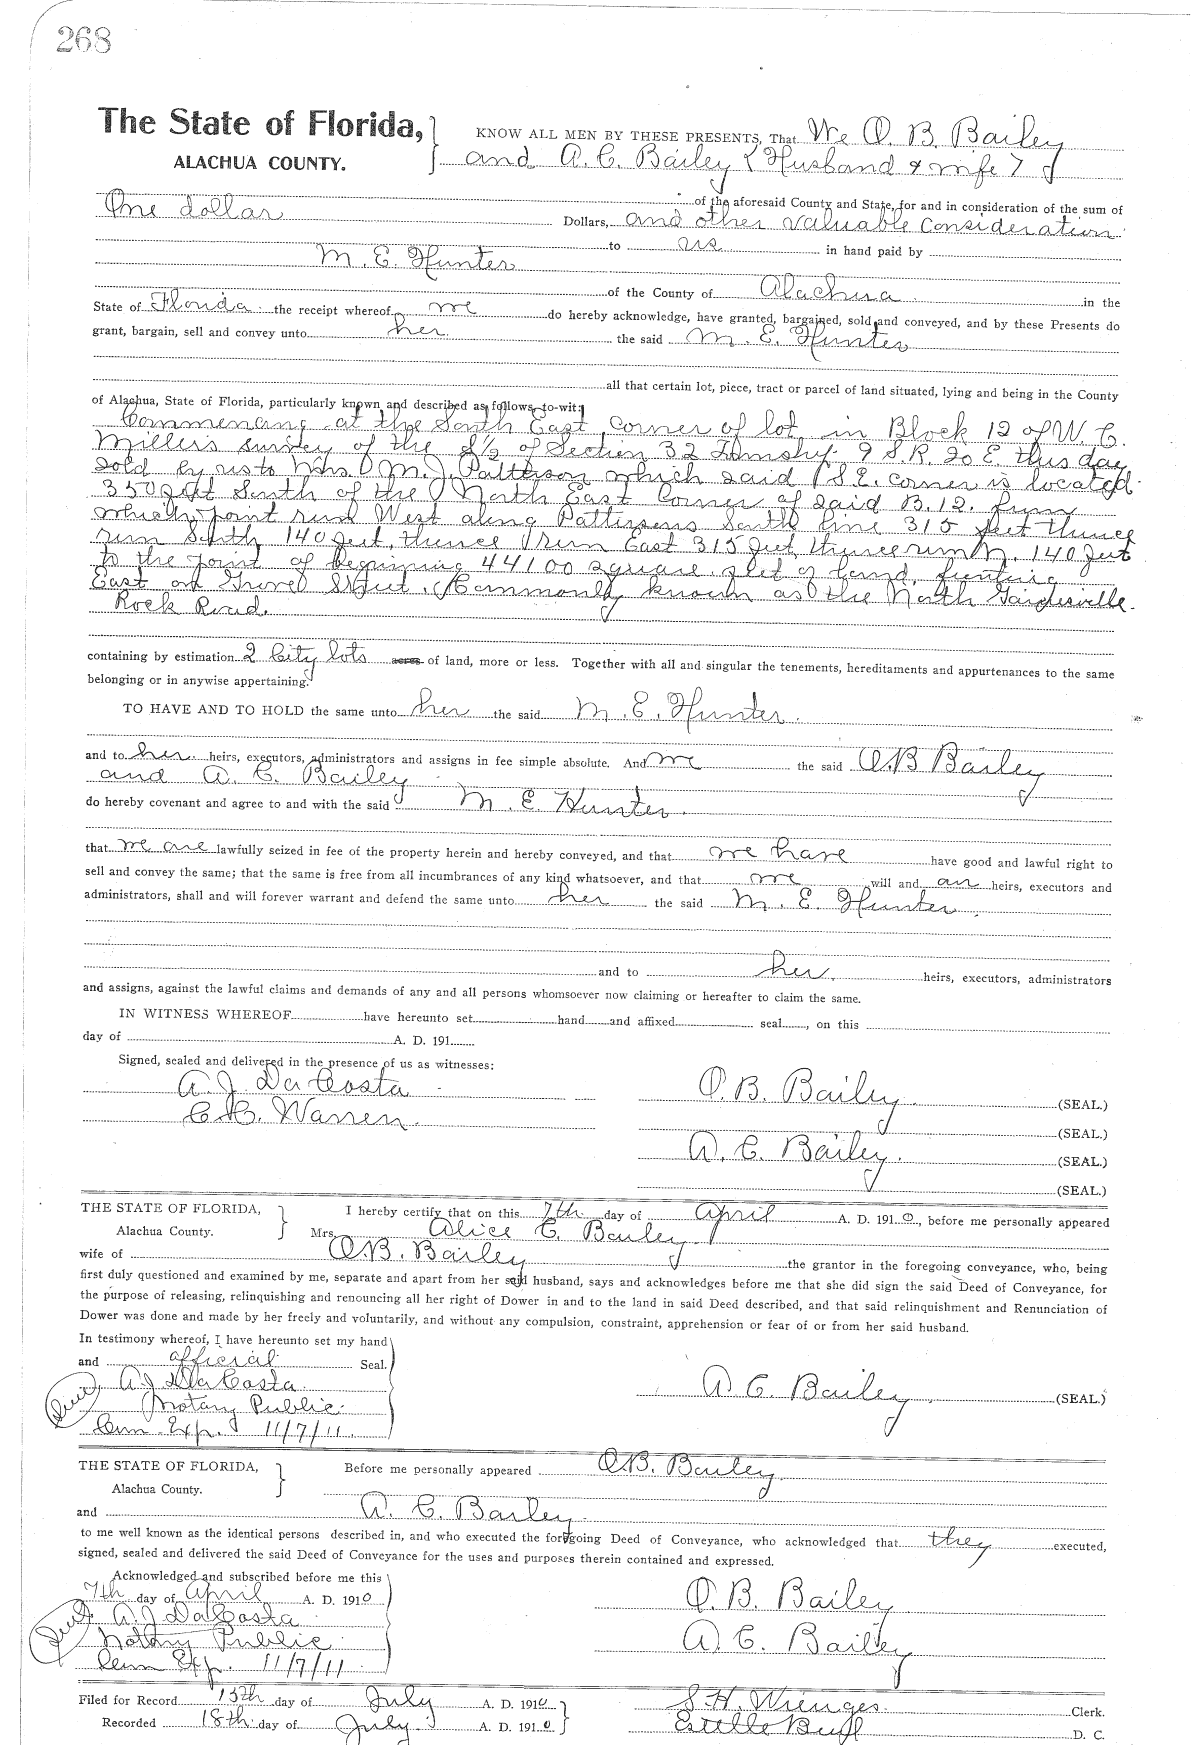 268
The State of Florida,
ALACHUA COUNTY.
KNOW ALL MEN BY THESE PRESENTS, That We O. B. Bailey
and A. C. Bailey (Husband & wife)
of the aforesaid County and State, for and in consideration of the sum of
One dollar Dollars, and other valuable consideration
to us in hand paid by
M. E. Hunter
of the County of Alachua in the
State of Florida the receipt whereof we do hereby acknowledge, have granted, bargained, sold and conveyed, and by these Presents do
grant, bargain, sell and convey unto her the said M. E. Hunter
all that certain lot, piece, tract or parcel of land situated, lying and being in the County
of Alachua, State of Florida, particularly known and described as follows, to-wit:
Commencing at the South East corner of lot in Block 12 of W. C.
Millers survey of the S½ of Section 32 Township 9 S R. 20 E. this day
sold by us to Mrs. M. J. Patterson which said S.E. corner is located
350 feet South of the North East Corner of said B. 12. from
which point run West along Pattersons South line 315 feet thence
run South 140 feet, thence run East 315 feet, thence run N. 140 feet
to the point of beginning 44100 square feet of land, fronting
East on Grove Street. (Commonly known as the North Gainesville
Rock Road.
containing by estimation 2 City lots acres of land, more or less. Together with all and singular the tenements, hereditaments and appurtenances to the same
belonging or in anywise appertaining.
TO HAVE AND TO HOLD the same unto her the said M. E. Hunter.
and to her heirs, executors, administrators and assigns in fee simple absolute. And we the said O.B Bailey
and A. C. Bailey
do hereby covenant and agree to and with the said M. E Hunter.
that we are lawfully seized in fee of the property herein and hereby conveyed, and that we have have good and lawful right to
sell and convey the same; that the same is free from all incumbrances of any kind whatsoever, and that we will and our heirs, executors and
administrators, shall and will forever warrant and defend the same unto her the said M. E. Hunter.
and to her. heirs, executors, administrators
and assigns, against the lawful claims and demands of any and all persons whomsoever now claiming or hereafter to claim the same.
IN WITNESS WHEREOF have hereunto set hand and affixed seal , on this
day of A. D. 191
Signed, sealed and delivered in the presence of us as witnesses:
A. J. DaCosta
C. C. Warren.
O. B. Bailey (SEAL.)
(SEAL.)
A. C. Bailey. (SEAL.)
(SEAL.)
THE STATE OF FLORIDA,
Alachua County.
I hereby certify that on this 7th day of April A. D. 1910, before me personally appeared
Mrs. Alice C. Bailey
wife of O.B. Bailey the grantor in the foregoing conveyance, who, being
first duly questioned and examined by me, separate and apart from her said husband, says and acknowledges before me that she did sign the said Deed of Conveyance, for
the purpose of releasing, relinquishing and renouncing all her right of Dower in and to the land in said Deed described, and that said relinquishment and Renunciation of
Dower was done and made by her freely and voluntarily, and without any compulsion, constraint, apprehension or fear of or from her said husband.
In testimony whereof, I have hereunto set my hand
and official Seal.
A. J. DaCosta
Notary Public.
Com. Exp. 11/7/11.
A. C. Bailey. (SEAL.)
THE STATE OF FLORIDA,
Alachua County.
Before me personally appeared O.B. Bailey
and A. C. Bailey.
to me well known as the identical persons described in, and who executed the foregoing Deed of Conveyance, who acknowledged that they executed,
signed, sealed and delivered the said Deed of Conveyance for the uses and purposes therein contained and expressed.
Acknowledged and subscribed before me this
7th day of April A. D. 1910
A. J DaCosta
Notary Public
Com Exp. 11/7/11
O. B. Bailey
A. C. Bailey
Filed for Record 15th day of July A. D. 1910
Recorded 18th day of July A. D. 1910
S. H. Wienges. Clerk.
Estelle D. C.